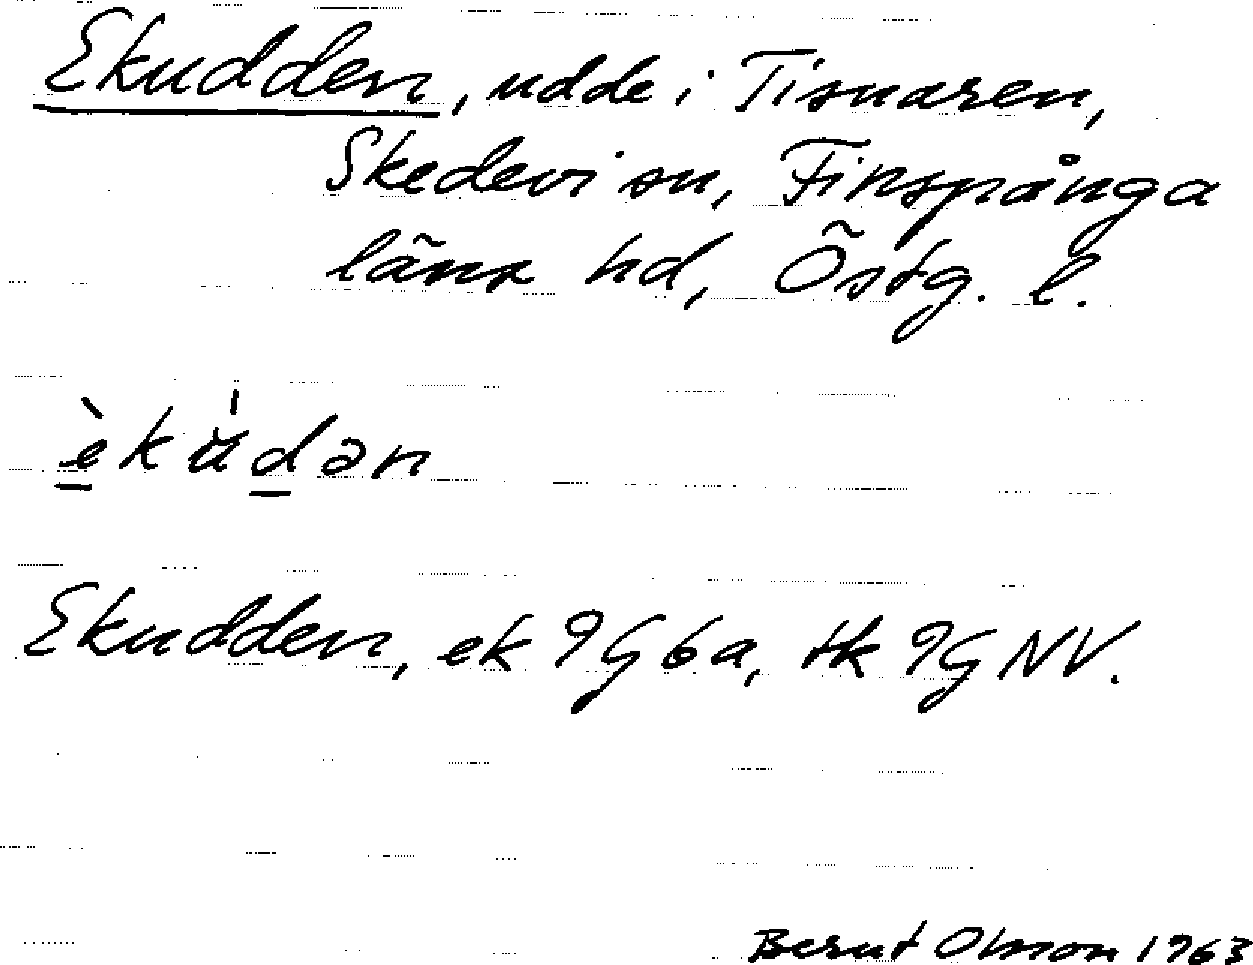 Ekudden, udde i Tisnaren,
Skedevi sn, Finspånga
läns hd, Östg. l.
èkud̠ən
Ekudden, ek 9G6a, tk 9GNV.
Bernt Olsson 1963